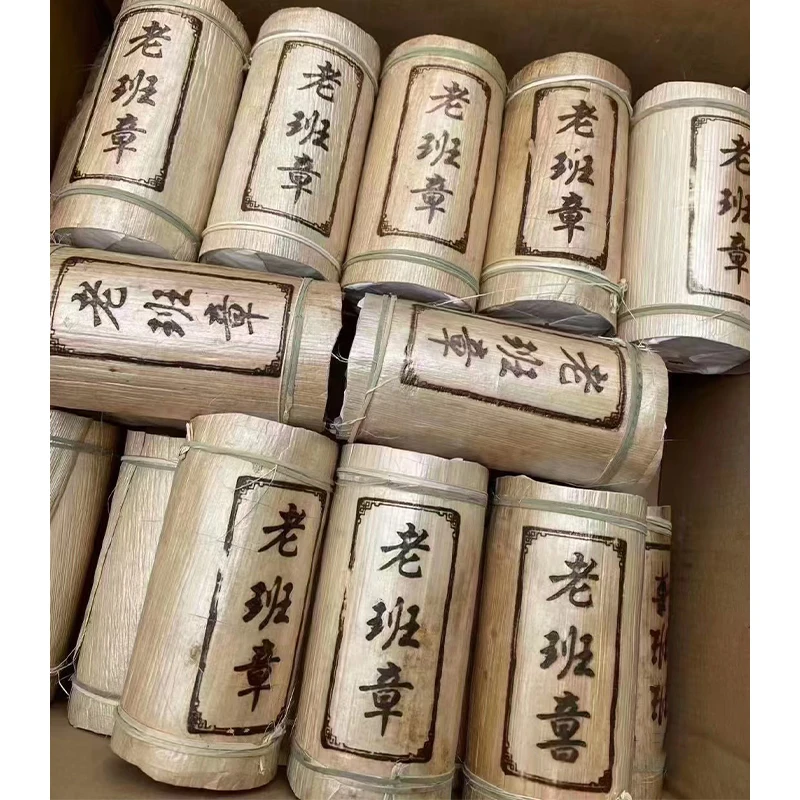 老班章
老班章
老班章
老班章
老班章
老班章
老班章
老班章
老班章
老班